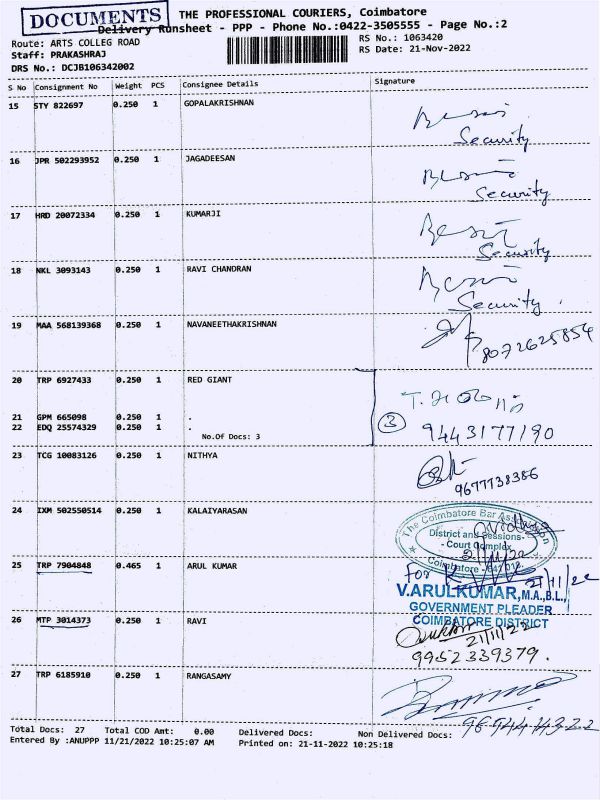 DOCUMENTS
THE PROFESSIONAL COURIERS, Coimbatore
Delivery Runsheet - PPP - Phone No.:0422-3505555 - Page No.:2
Route: ARTS COLLEG ROAD
RS No.: 1063420
Staff: PRAKASHRAJ
RS Date: 21-Nov-2022
DRS No.: DCJB106342002
S No Consignment No Weight PCS Consignee Details Signature
15 STY 822697 0.250 1 GOPALAKRISHNAN
Security
16 JPR 502293952 0.250 1 JAGADEESAN
Security
17 HRD 20072334 0.250 1 KUMARJI
Security
18 NKL 3093143 0.250 1 RAVI CHANDRAN
Security
19 MAA 568139368 0.250 1 NAVANEETHAKRISHNAN
8072625854
20 TRP 6927433 0.250 1 RED GIANT
21 GPM 665098 0.250 1 .
22 EDQ 25574329 0.250 1 .
3
9443177190
No.Of Docs: 3
23 TCG 10083126 0.250 1 NITHYA
9677738386
24 IXM 502550514 0.250 1 KALAIYARASAN
The Coimbatore Bar Association
District and Sessions
Court Complex
Coimbatore - 641 018.
25 TRP 7904848 0.465 1 ARUL KUMAR
For
21/11/22
V.ARULKUMAR,M.A.,B.L.,
GOVERNMENT PLEADER
COIMBATORE DISTRICT
26 MTP 3014373 0.250 1 RAVI
21/11/22
9952339379.
27 TRP 6185910 0.250 1 RANGASAMY
Total Docs: 27 Total COD Amt: 0.00 Delivered Docs: Non Delivered Docs:
Entered By :ANUPPP 11/21/2022 10:25:07 AM Printed on: 21-11-2022 10:25:18